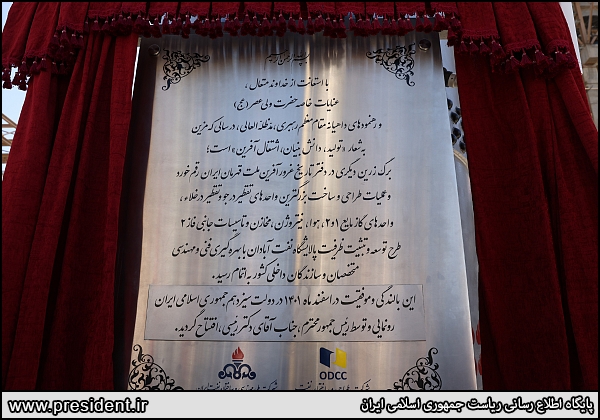 بسم الله الرحمن الرحیم
با استعانت از خداوند متعال،
عنایات خاصه حضرت ولی عصر (عج)
و رهنمودهای داهیانه مقام معظم رهبری، مدظله العالی، در سالی که مزین
به شعار «تولید، دانش بنیان، اشتغال آفرین» است؛
برگ زرین دیگری در دفتر تاریخ غرور آفرین ملت قهرمان ایران رقم خورد
و عملیات طراحی و ساخت بزرگترین واحدهای تقطیر در جو و تقطیر در خلاء،
واحدهای گاز مایع ۱و۲، هوا، نیتروژن، مخازن و تاسیسات جانبی فاز ۲
طرح توسعه و تثبیت ظرفیت پالایشگاه نفت آبادان با بهره گیری فنی و مهندسی
متخصصان و سازندگان داخلی کشور به اتمام رسید.
این بالندگی و موفقیت در اسفند ماه ۱۴۰۱ در دولت سیزدهم جمهوری اسلامی ایران
رونمایی و توسط رئیس جمهور محترم، جناب آقای دکتر رئیسی، افتتاح گردید.
ODCC
www.president.ir
پایگاه اطلاع رسانی ریاست جمهوری اسلامی ایران